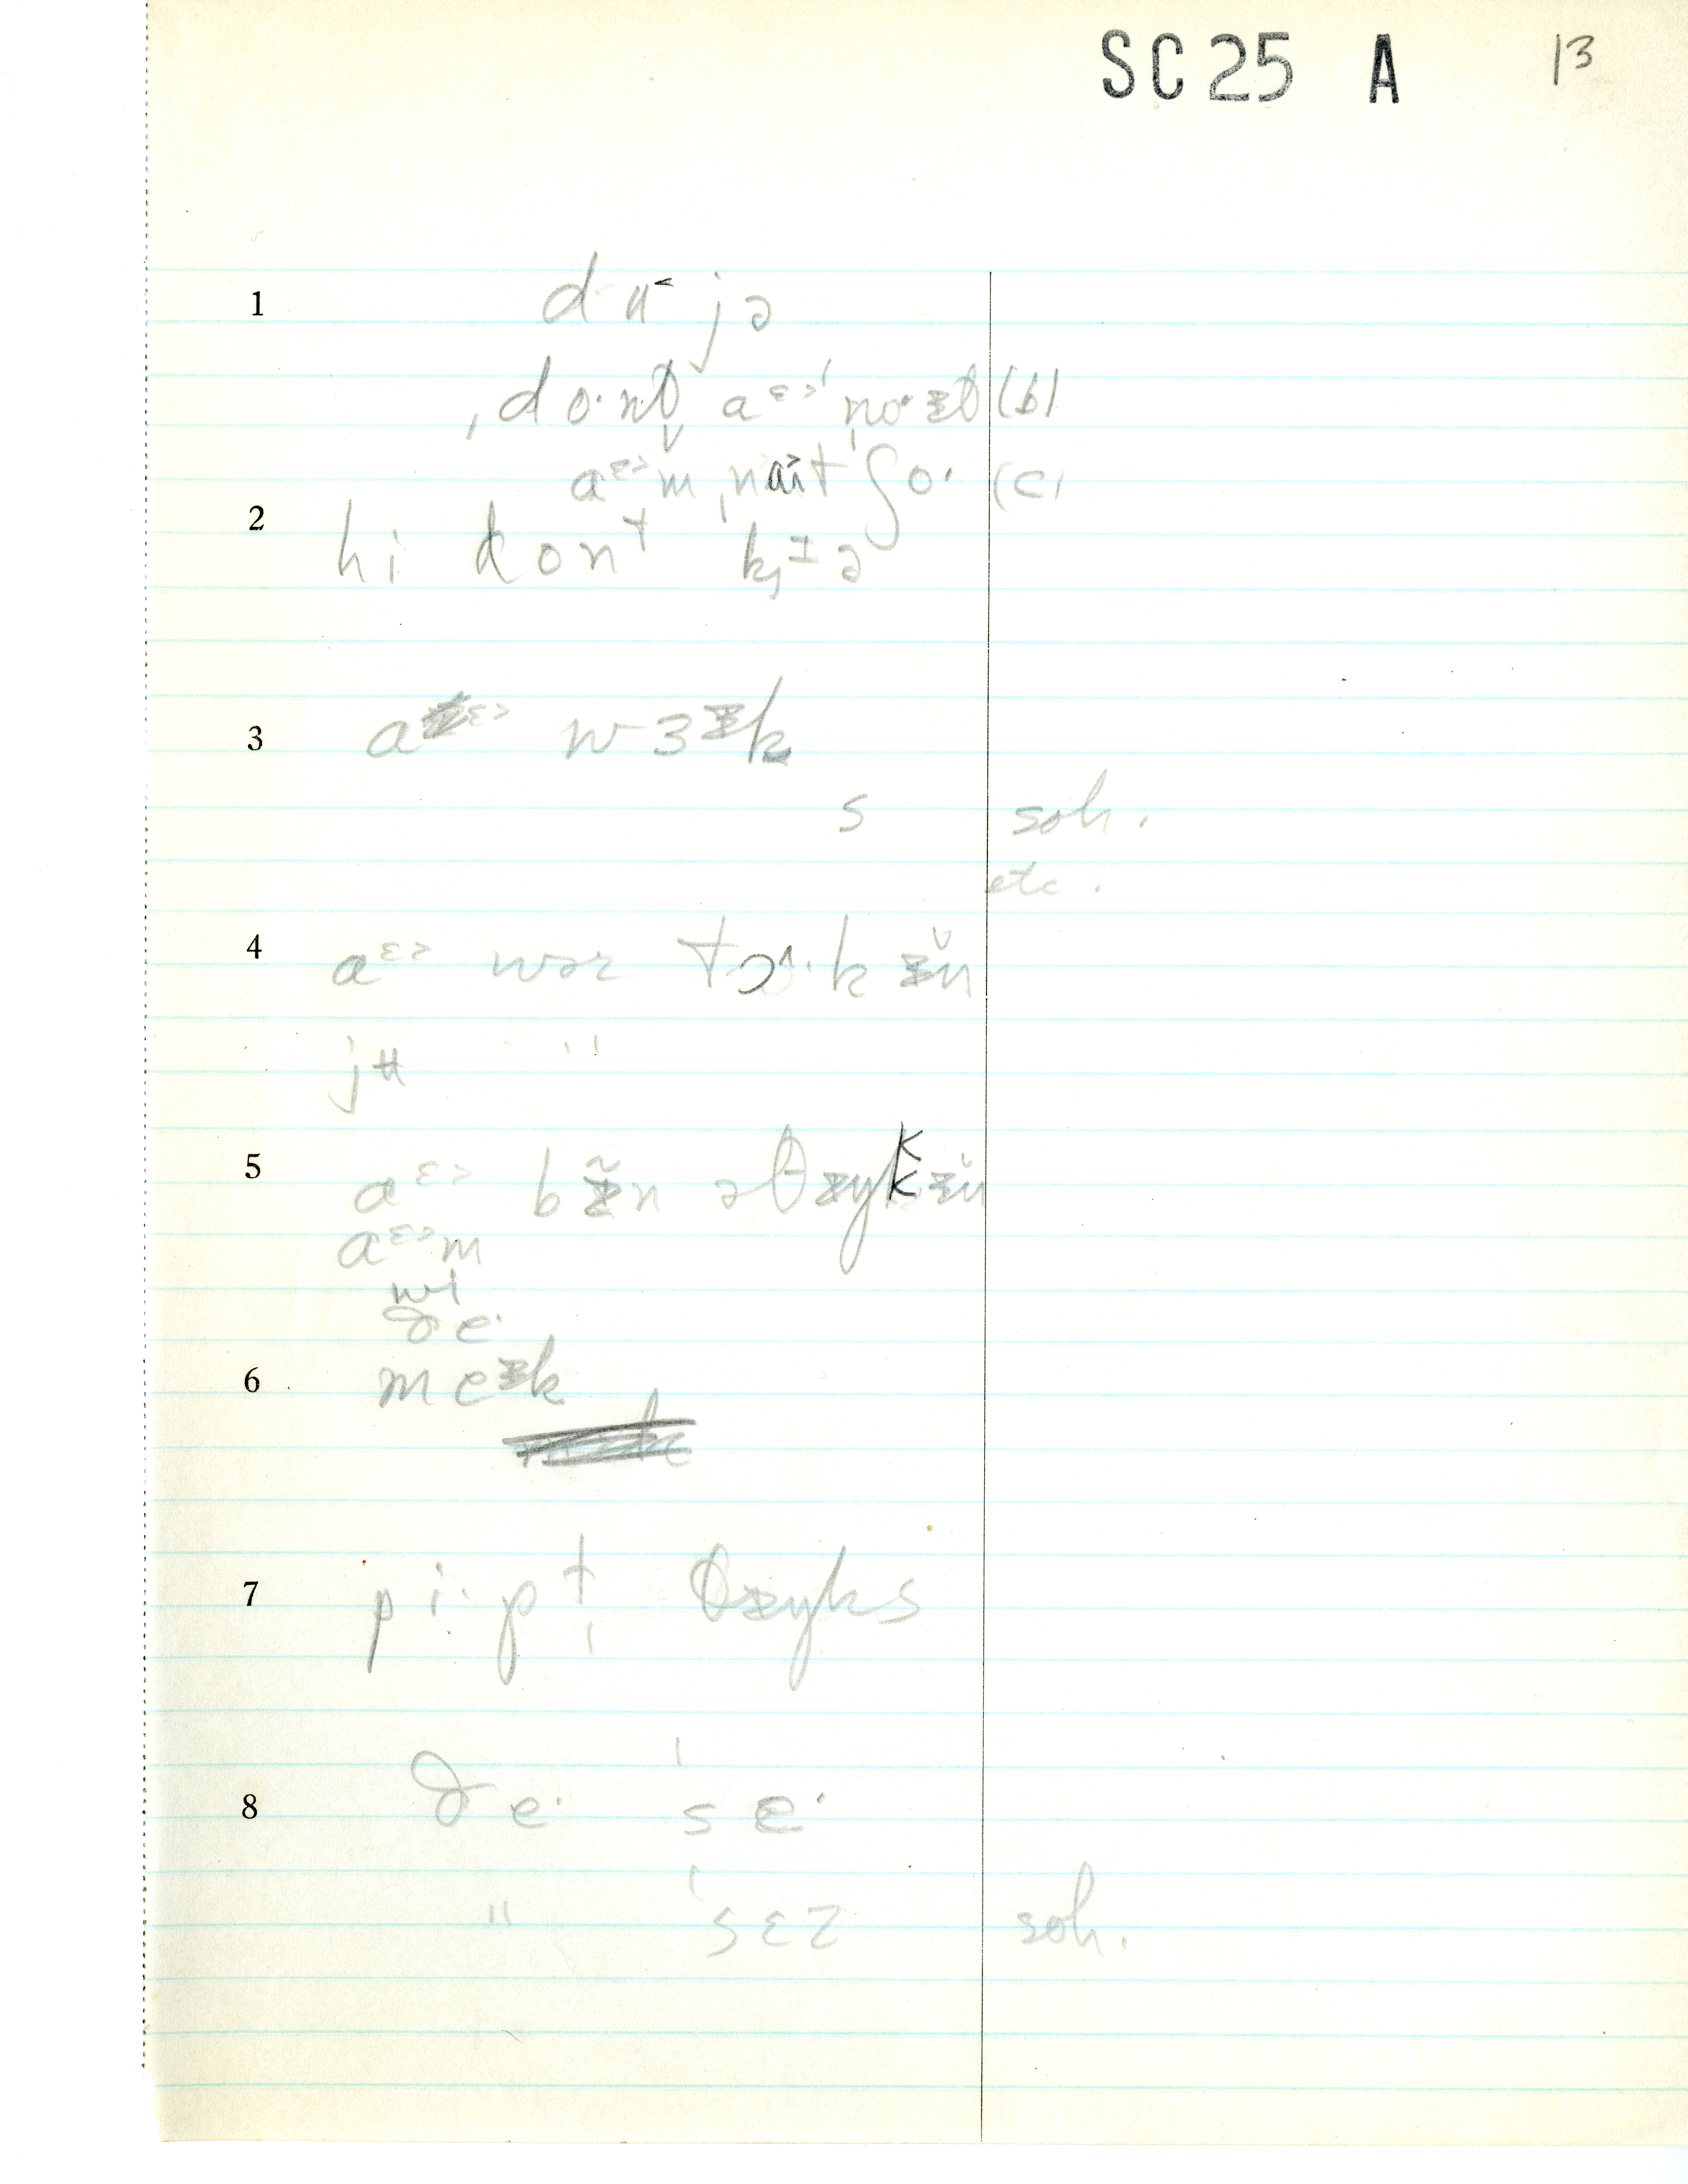 SC 25 A 13
1 d ʉ˂ jə
ˌdo·nt̬ aᵋ˃ ˈno·ᵻt̬ (b)
aᵋ˃m ˌnat ʃo· (c)
2 hi dont k̡ᵻə
3 aᵋ˃ wɜᵻk
s soh.
etc.
4 aᵋ˃ wər tɔ˄·k ᵻ̆n
jʉ ''
5 aᵋ˃ bᵻ̃n əθᵻŋkkᵻ̆n
aᵋ˃m
wi
ðe·
6 meᵻk
7 pi·pḷ θᵻŋks
8 ðe· ˈse·
" ˈsɛz soh.